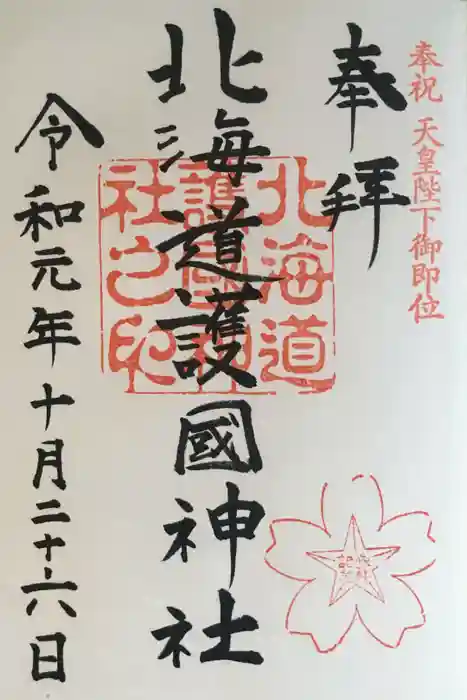 奉祝 天皇陛下御即位
奉拝
北海道護國神社
北海道
護國神
社之印
令和元年十月二十六日